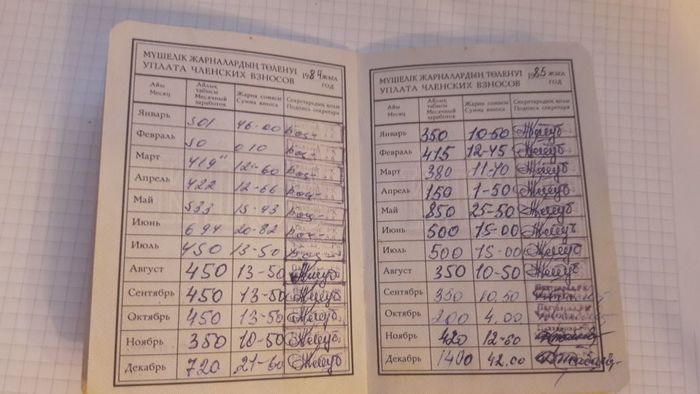 МҮШЕЛІК ЖАРНАЛАРДЫҢ ТӨЛЕНУІ 1984 ЖЫЛ
УПЛАТА ЧЛЕНСКИХ ВЗНОСОВ ГОД
Айы Месяц
Айлық табысы Месячный заработок
Жарна сомасы Сумма взноса
Секретардың қолы Подпись секретаря
Январь 301
Февраль 10 0 10
Март 419 12-60
Апрель 422 12-66
Май 533 15-93
Июнь 694 20-82
Июль 450 13-50
Август 450 13-50
Сентябрь 450 13-50
Октябрь 450 13-50
Ноябрь 350 10-50
Декабрь 720 21-60
МҮШЕЛІК ЖАРНАЛАРДЫҢ ТӨЛЕНУІ 1985 ЖЫЛ
УПЛАТА ЧЛЕНСКИХ ВЗНОСОВ ГОД
Айы Месяц
Айлық табысы Месячный заработок
Жарна сомасы Сумма взноса
Секретардың қолы Подпись секретаря
Январь 350 10-50
Февраль 415 12-45
Март 380 11-40
Апрель 150 1-50
Май 850 25-50
Июнь 500 15-00
Июль 500 15-00
Август 350 10-50
Сентябрь 350 10.50
Октябрь 200 4.00
Ноябрь 420 12-60
Декабрь 1400 42.00